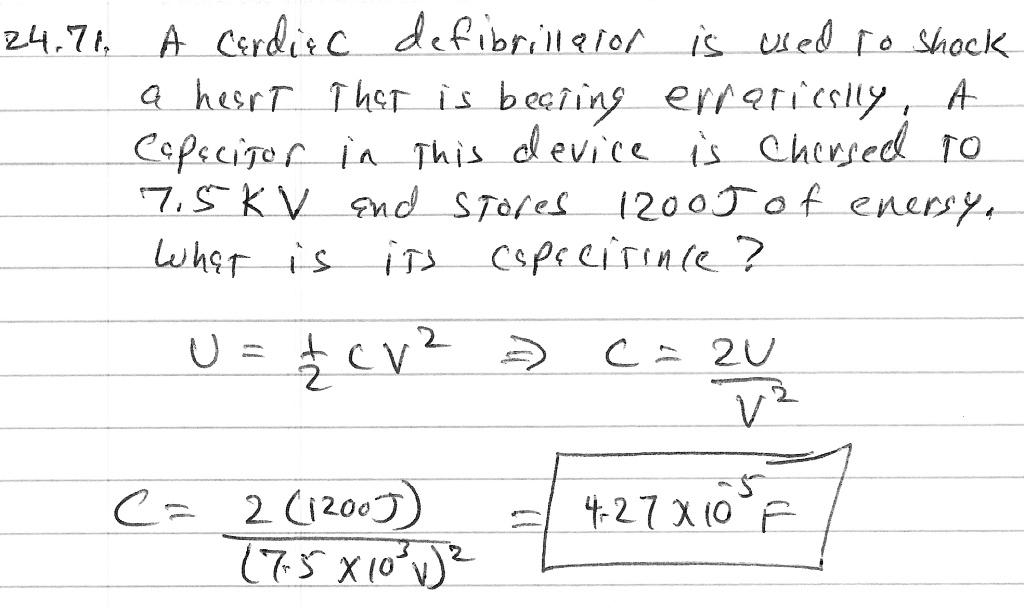 24.71. A cardiac defibrillator is used to shock
a heart that is beating erratically. A
capacitor in this device is charged to
7.5 KV and stores 1200J of energy.
What is its capacitince?
U = 1/2 CV² ⇒ C = 2U/V²
C = 2(1200J)/(7.5 x 10³V)² = 4.27 x 10⁻⁵ F